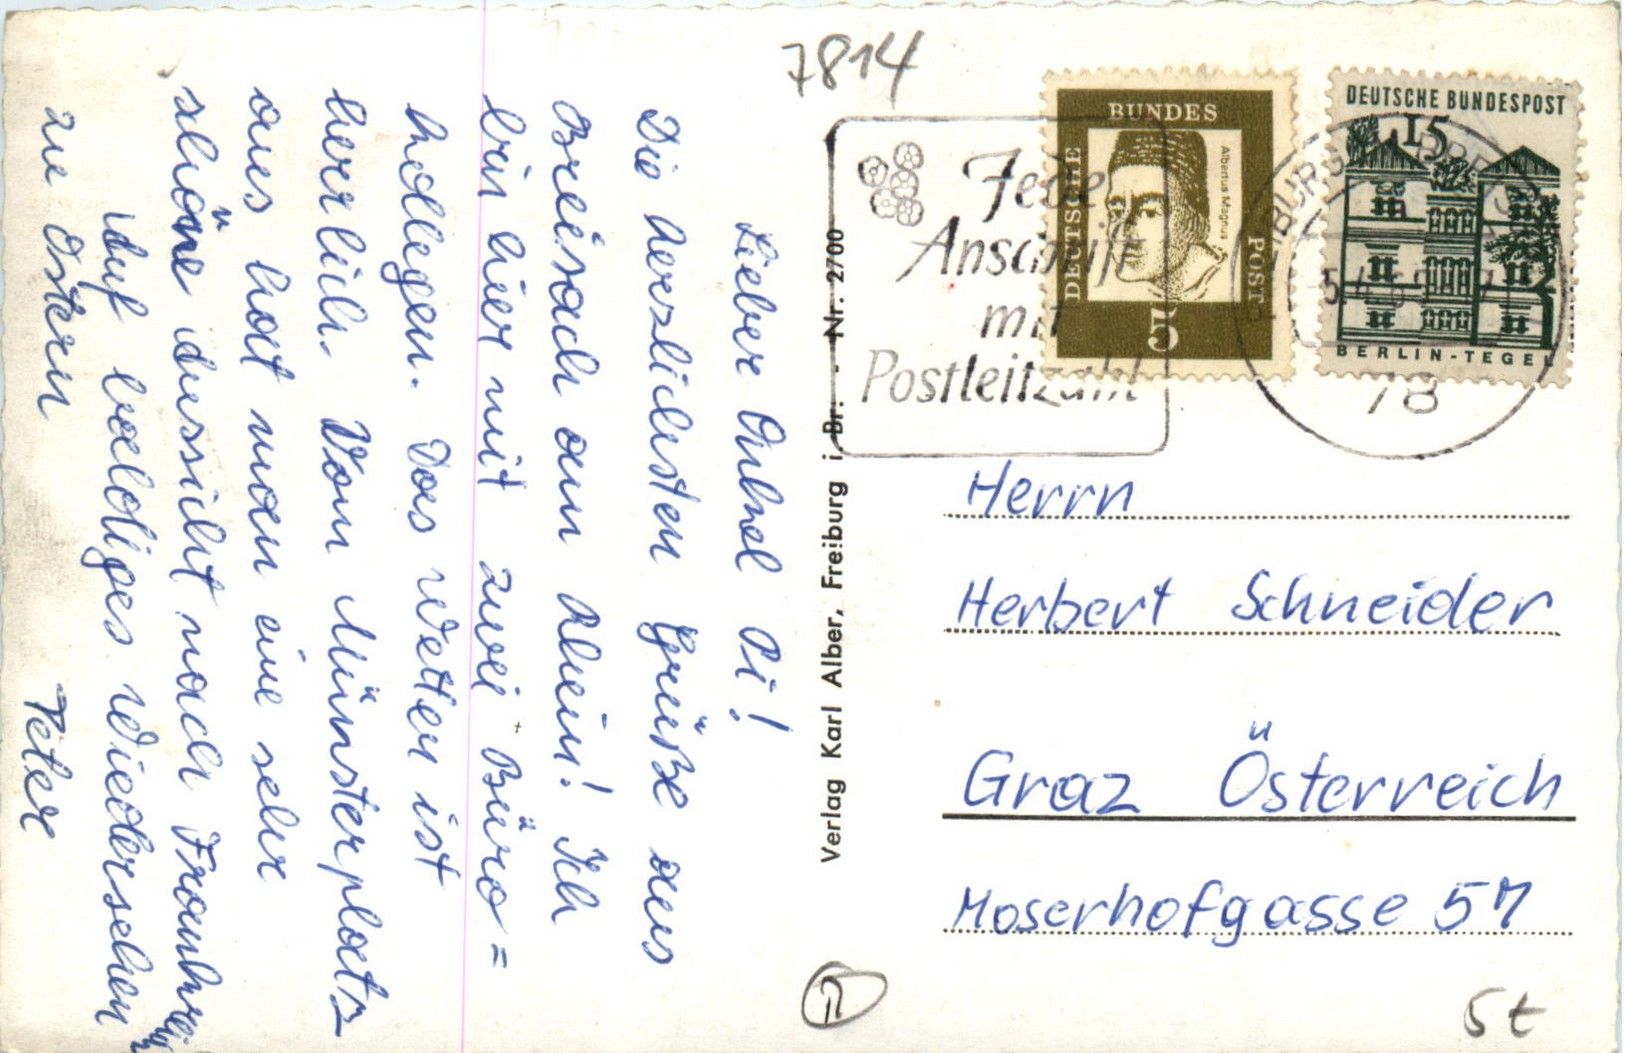 7814
Lieber Onkel Pi!
Die herzlichsten Grüße aus
Breisach am Rhein! Ich
bin hier mit zwei Büro=
kollegen. Das Wetter ist
herrlich. Vom Münsterplatz
aus hat man eine sehr
schöne Aussicht nach Frankreich
Auf baldiges Wiedersehen
zu Ostern
Peter
Verlag Karl Alber, Freiburg i. Br. - Nr. 2700
Jede
Anschrift
mit
Postleitzahl
DEUTSCHE
BUNDES
POST
Albertus Magnus
5
DEUTSCHE BUNDESPOST
15
BERLIN-TEGEL
78
Herrn
Herbert Schneider
Graz Österreich
Moserhofgasse 57
5t